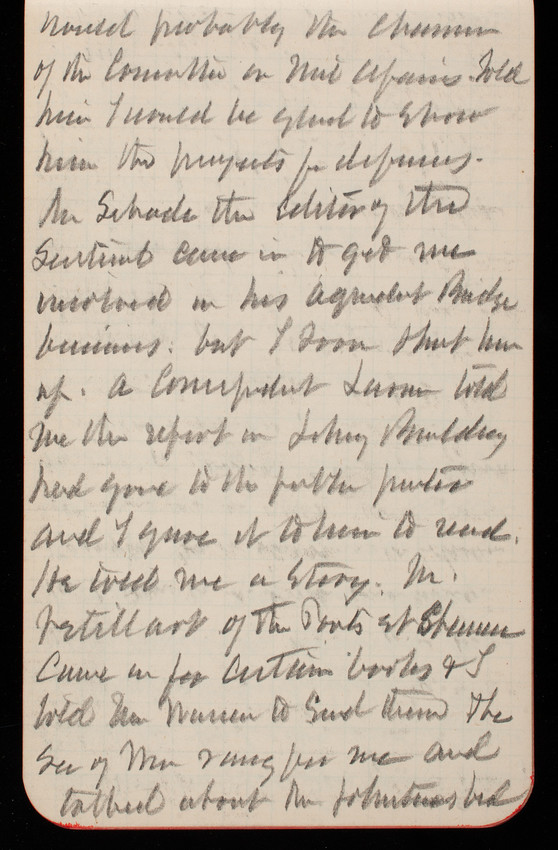 would probably be chairman
of the Committee on Mil Affairs. Told
him I would be glad to show
him the projects for defenses.
Mr Schade the editor of the
Sentinel came in to get me
involved in his Aqueduct Bridge
business. but I soon shut him
up. A Correspondent told
me the report on Library Building
had gone to the public printer
and I gave it to him to read.
He told me a story. Mr.
of the Ponts et Chaussees
came in for certain books & I
told Mr Warren to send them The
Sec of War rang for me and
talked about the bed